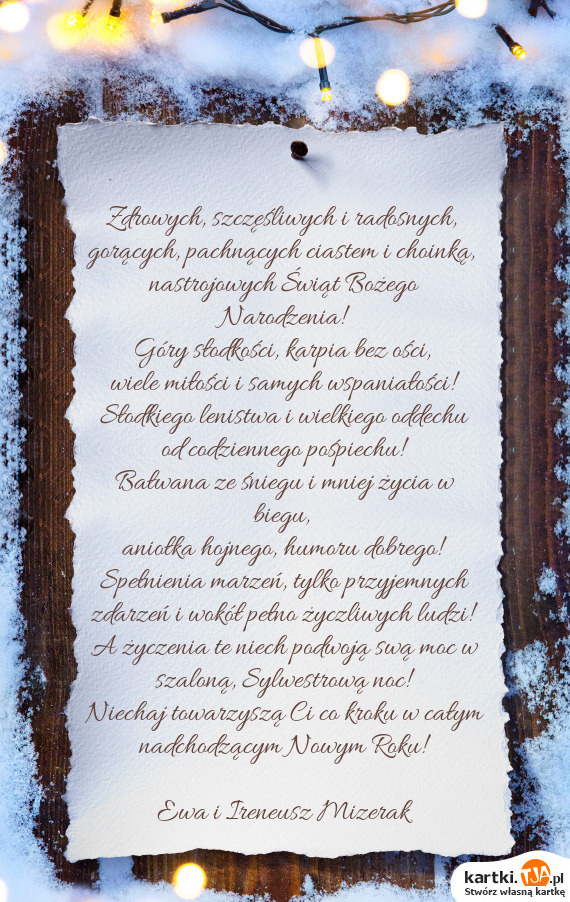 Zdrowych, szczęśliwych i radosnych,
gorących, pachnących ciastem i choinką,
nastrojowych Świąt Bożego
Narodzenia!
Góry słodkości, karpia bez ości,
wiele miłości i samych wspaniałości!
Słodkiego lenistwa i wielkiego oddechu
od codziennego pośpiechu!
Bałwana ze śniegu i mniej życia w
biegu,
aniołka hojnego, humoru dobrego!
Spełnienia marzeń, tylko przyjemnych
zdarzeń i wokół pełno życzliwych ludzi!
A życzenia te niech podwoją swą moc w
szaloną, Sylwestrową noc!
Niechaj towarzyszą Ci co kroku w całym
nadchodzącym Nowym Roku!
Ewa i Ireneusz Mizerak
kartki.TJA.pl
Stwórz własną kartkę